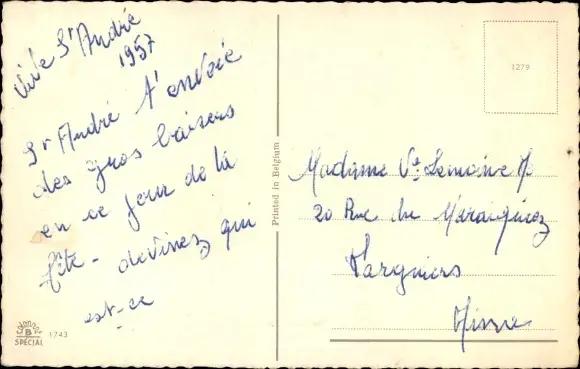 Vive St André
1957
St André t'envoie
des gros baisers
en ce jour de la
fête - devinez qui
est-ce
B
SPECIAL
1743
Printed in Belgium
1279
Madame Ve Lemoine
20 Rue du
Aisne